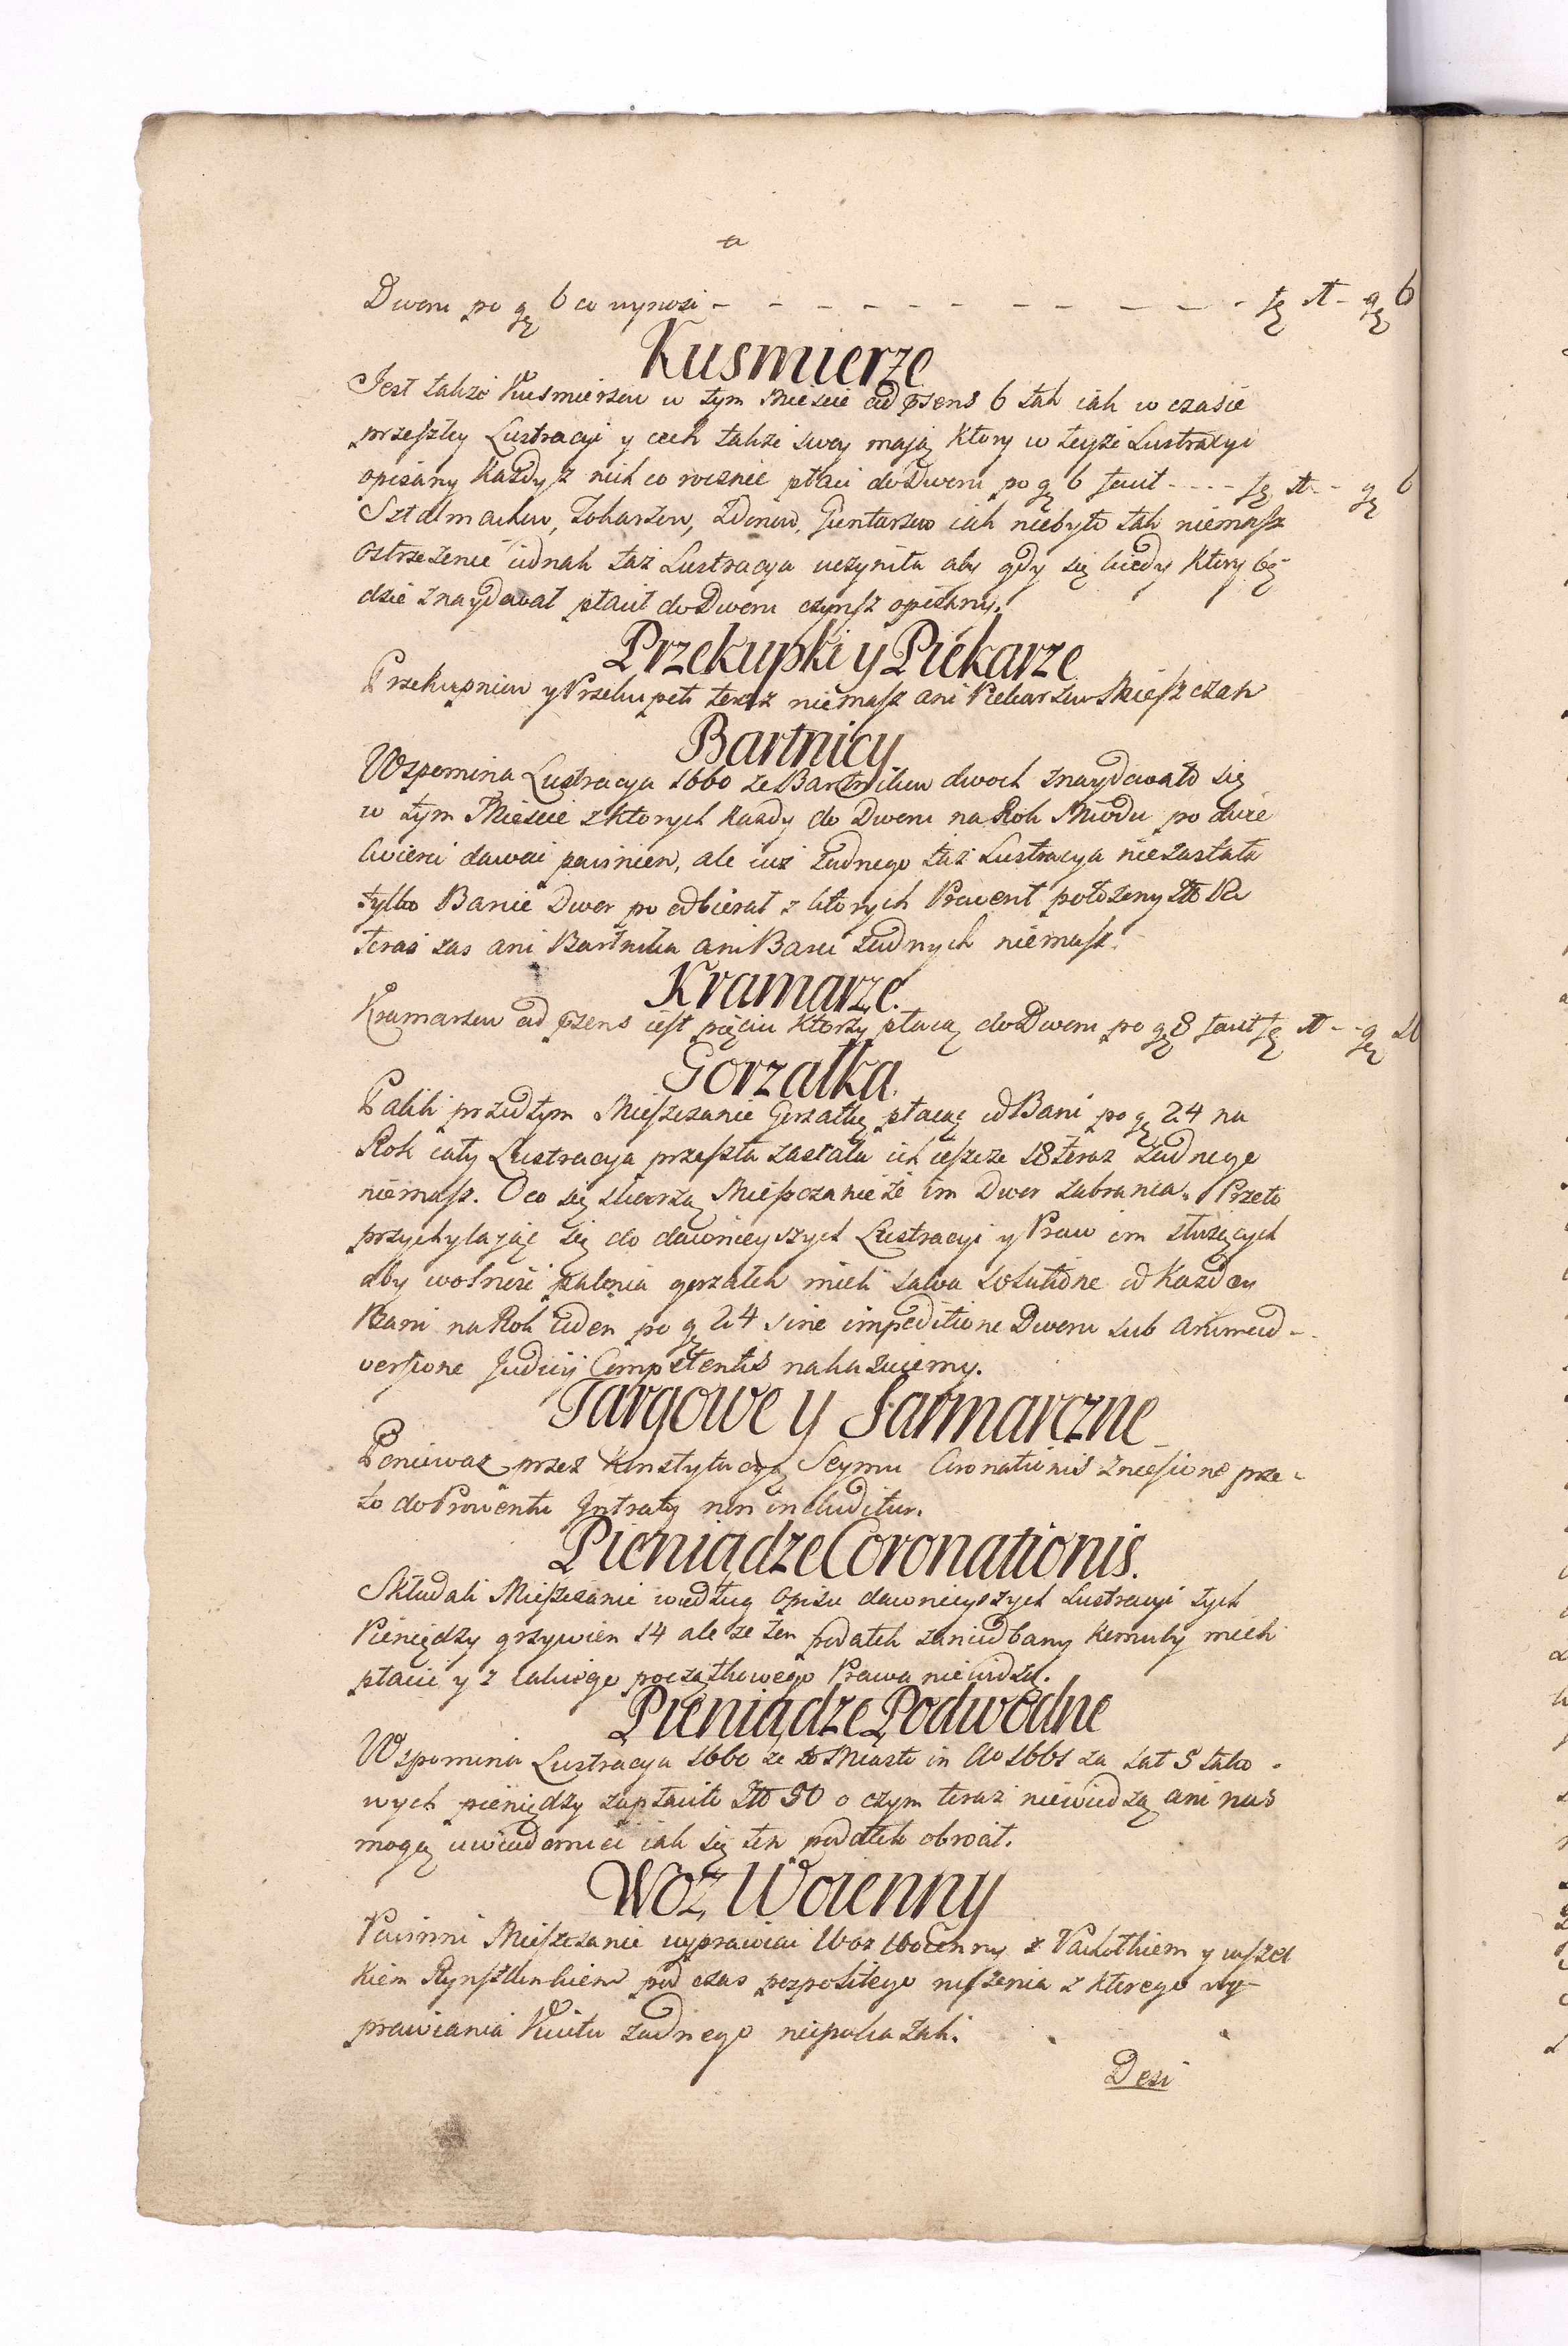 Dworu po gę 6 co wynosi - - - - - - - - - - - - fę 1 - gę 6
Kusmierze
Jest także Kusmierzow w tym Miescie ad psens 6 tak iak w czasie
przeszłey Lustracyi y cech także swoy maią, ktory w teyże Lustracyi
opisany każdy z nich co rocznie płaci do Dworu po gę 6 facit - - - fę 1 - gę 6
Sztalmachow, Tokarzow, Zdonow, Gontarzow iak niebyło tak niemasz
ostrzeżenie iednak taż Lustracya uczyniła aby gdy się kiedy ktory bę-
dzie znaydował płacił do Dworu czynsz opisany.
Przekupki y Piekarze
Przekupniow y Przekupek teraz niemasz ani Piekarzow Mieszczan
Bartnicy
Wspomina Lustracya 1660 że Bartnikow dwoch znaydowało się
w tym Miescie z ktorych każdy do Dworu na Rok Miodu po dwie
cwierci dawać powinien, ale iuż żadnego taż Lustracya niezastała
tylko Banie Dwor po odbierał z ktorych Prowent położony
teraz zas ani Bartnika ani Bani żadnych niemasz.
Kramarze.
Kramarzow ad psens iest pięciu ktorzy płacą do Dworu po gę 8 facit fę 1 - gę 10
Gorzałka.
Palili przedtym Mieszczanie Gorzałkę płacąc od Bani po gę 24 na
Rok cały Lustracya przeszła zastała ich ieszcze 18 teraz żadnego
niemasz. O co się skarżą Mieszczanie że im Dwor zabrania. Przeto
przychylaiąc się do dawnieyszych Lustracyi y Praw im służących
aby wolność palenia gorzałek mieli salva solutione od każdey
Bani na Rok ieden po gę 24 sine impeditione Dworu sub animad-
versione Judicij Competentis nakazuiemy.
Targowe y Jarmarczne
Ponieważ przez Konstytucyą Seymu Coronationis zniesione prze-
to do Prowentu Intraty non includitur.
Pieniądze Coronationis.
Składali Mieszczanie według opisu dawnieyszych Lustracyi tych
Pieniędzy grzywien 14 ale że ten podatek zaniedbany komuby mieli
płacić y z iakiego początkowego Prawa niewidzą.
Pieniądze Podwodne
Wspomina Lustracya 1660 że to Miasto in Ao 1661 za lat 5 tako-
wych pieniędzy zapłaciło Złł 50 o czym teraz niewiedzą ani nas
mogą uwiadomić iak się ten podatek obrocił.
Woz Woienny
Powinni Mieszczanie wyprawiać Woz Woienny z Pachołkiem y wszel
kiem Rynsztunkiem pod czas pospolitego ruszenia z ktorego wy-
prawiania Kwitu żadnego niepokazali.
Desi